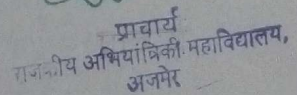 प्राचार्य
राजकीय अभियांत्रिकी महाविद्यालय,
अजमेर